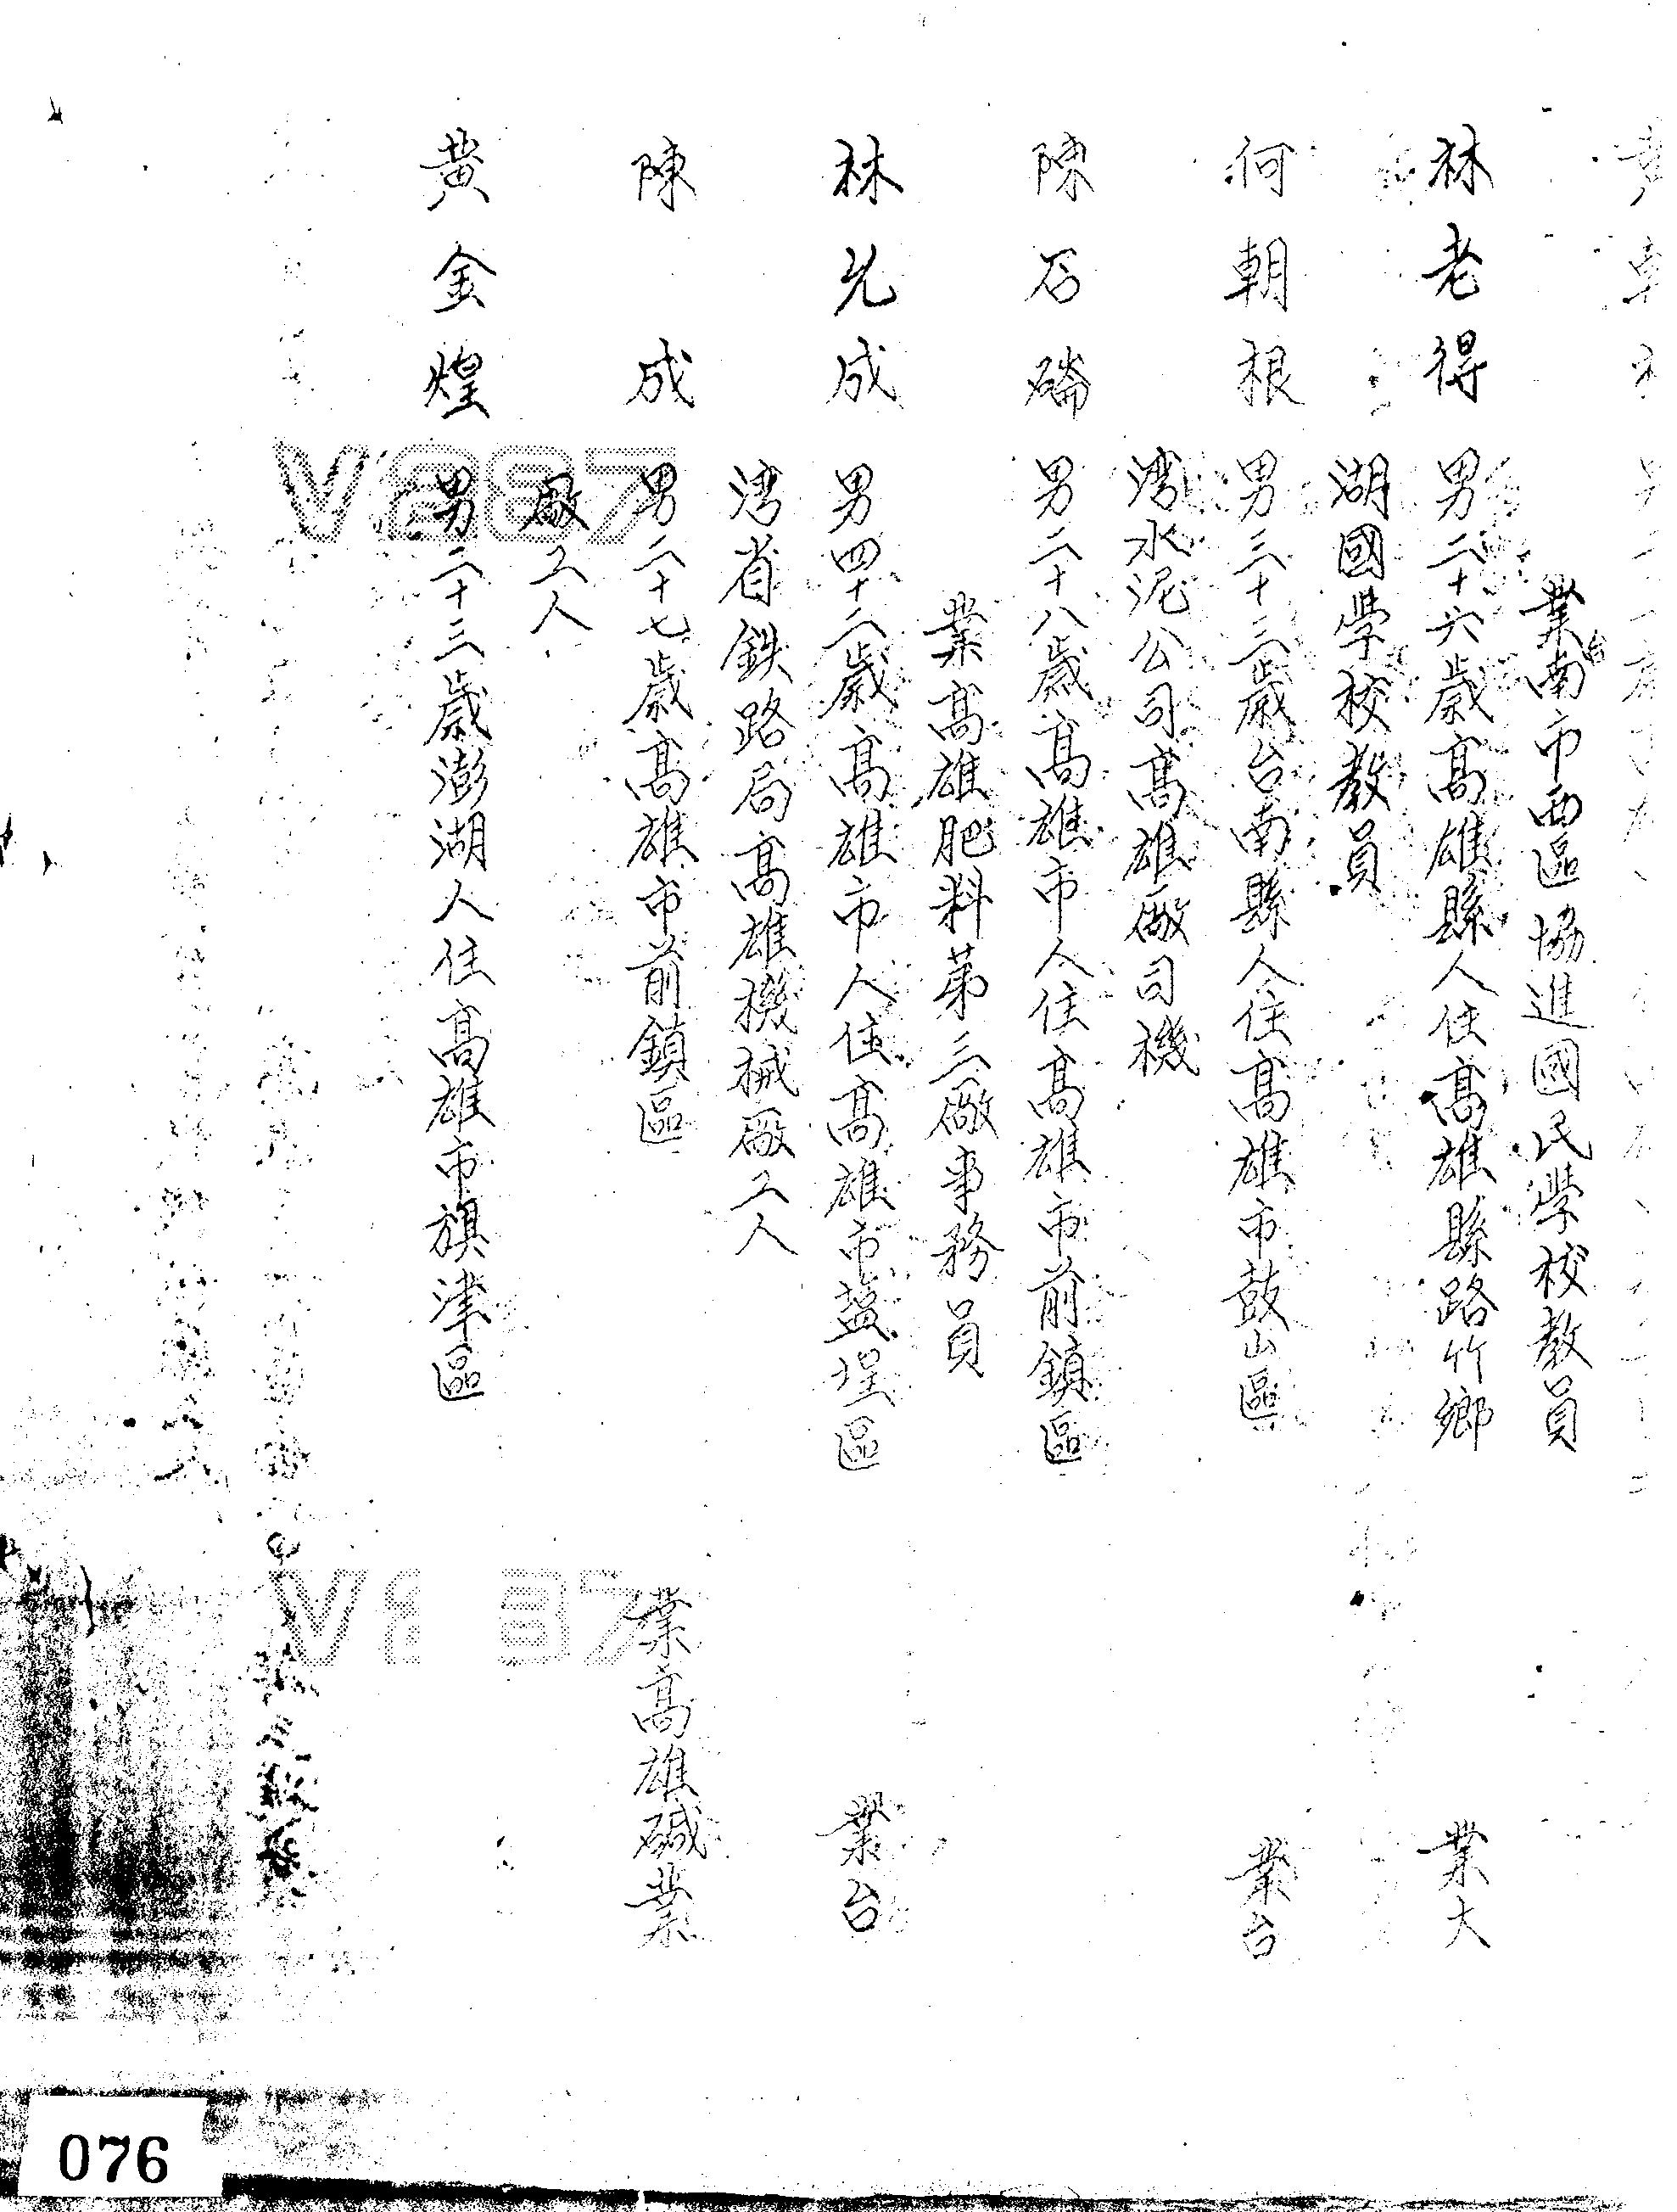 業台南市西區協進國民學校教員
林老得 男二十六歲高雄縣人住高雄縣路竹鄉 業大
湖國學校教員
何朝根 男三十三歲台南縣人住高雄市鼓山區 業台
湾水泥公司高雄廠司機
陳石磮 男二十八歲高雄市人住高雄市前鎮區
業高雄肥料第三廠事務員
林兊成 男四十二歲高雄市人住高雄市盐埕區 業台
湾省鉄路局高雄機械廠工人
陳 成 男二十七歲高雄市前鎮區 業高雄碱業
廠工人
黄金煌 男二十三歲澎湖人住高雄市旗津區
076